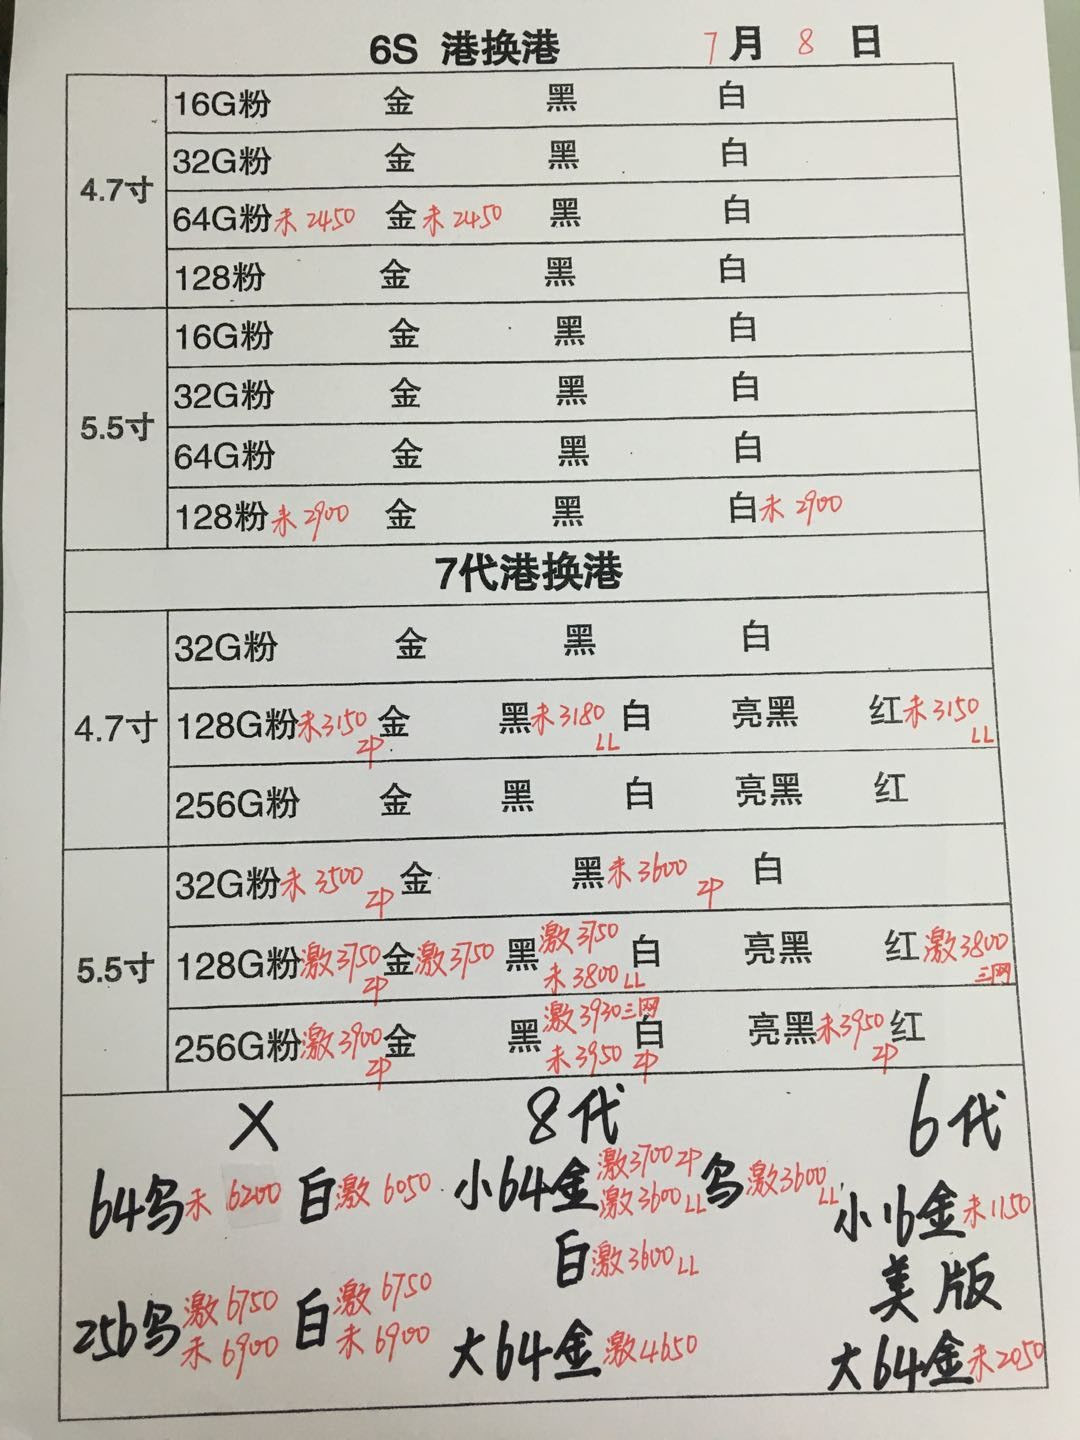 6S 港换港 7月8日
4.7寸
16G粉 金 黑 白
32G粉 金 黑 白
64G粉未2450 金未2450 黑 白
128粉 金 黑 白
5.5寸
16G粉 金 黑 白
32G粉 金 黑 白
64G粉 金 黑 白
128粉未2900 金 黑 白未2900
7代港换港
4.7寸
32G粉 金 黑 白
128G粉未3150 ZP 金 黑未3180 LL 白 亮黑 红未3150 LL
256G粉 金 黑 白 亮黑 红
5.5寸
32G粉未3500 ZP 金 黑未3600 ZP 白
128G粉激3750 ZP 金激3750 黑激3750 未3800 LL 白 亮黑 红激3800 三网
256G粉激3900 ZP 金 黑激3930三网 未3950 ZP 白 亮黑未3950 ZP 红
X 8代 6代
64乌未6200 白激6050 小64金激3700 ZP 激3600 LL 乌激3600 LL 小16金未1150
白激3600 LL 美版
256乌激6750 未6900 白激6750 未6900 大64金激4650 大64金未2050